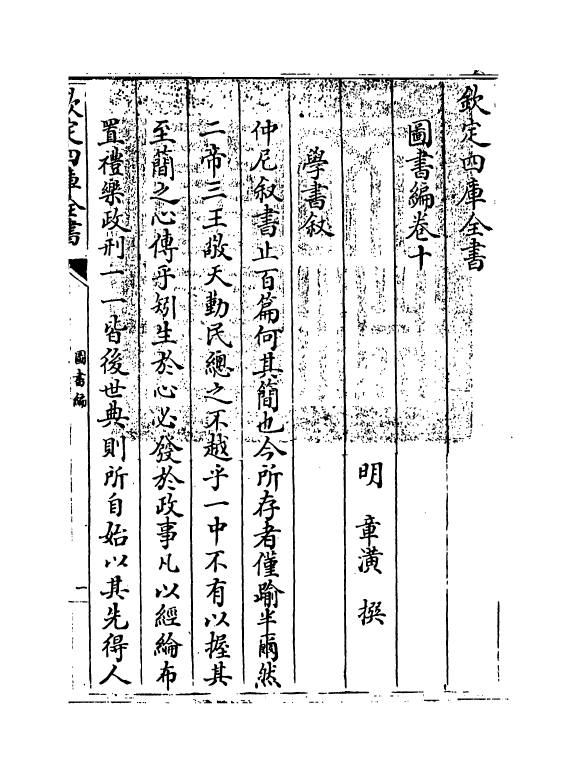 欽定四庫全書
圖書編卷十
明　章潢　撰
學書叙
仲尼叙書止百篇何其簡也今所存者僅踰半爾然
二帝三王敬天勤民總之不越乎一中不有以握其
至蕳之心傳乎矧生於心必發於政事凡以經綸布
置禮樂政刑一一皆後世典則所自始以其先得人
欽定四庫全書
圖書編
一